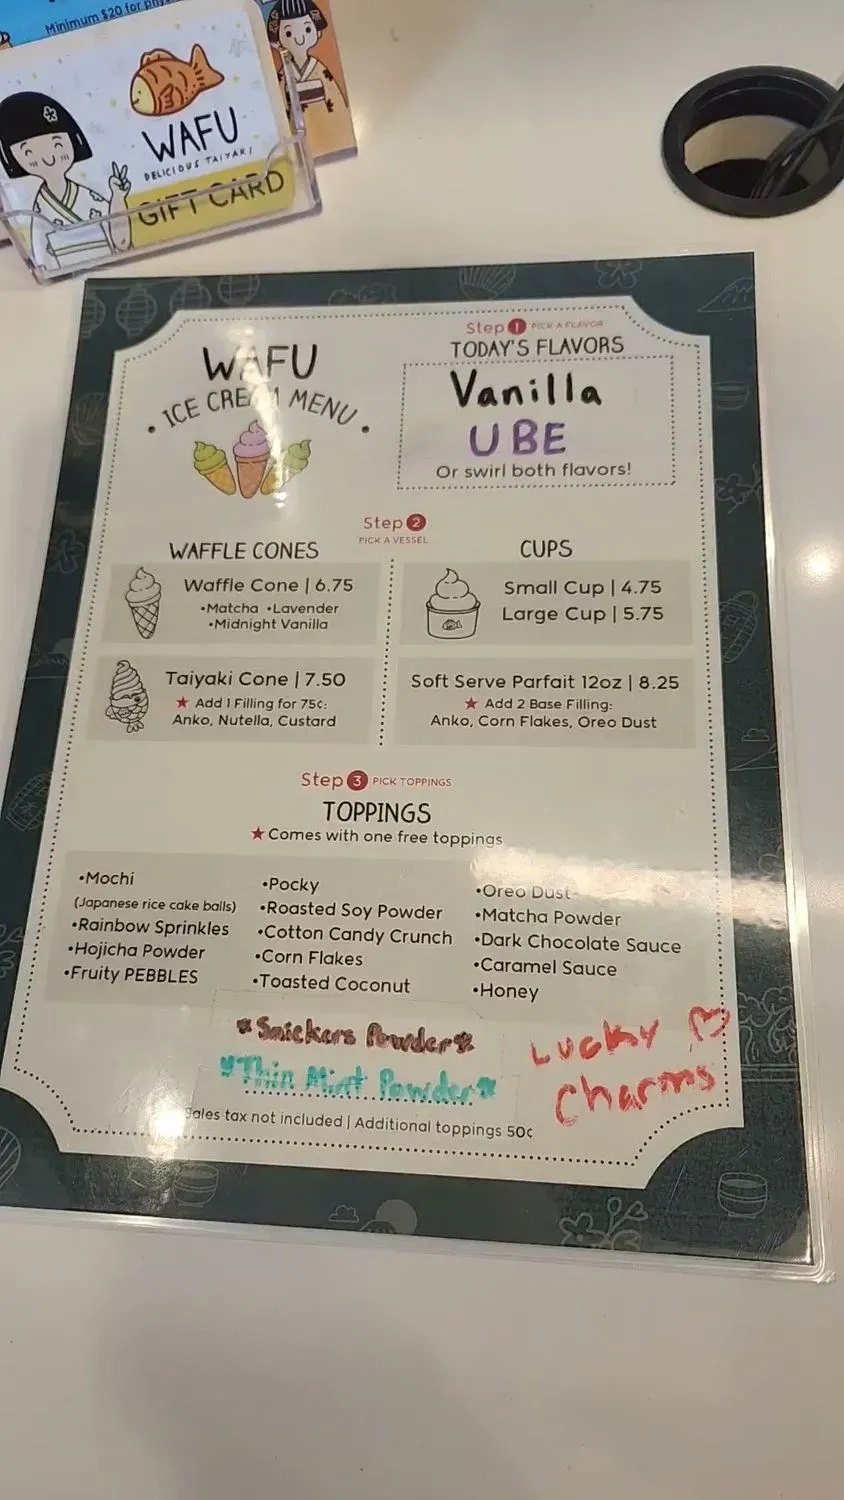 Minimum $20 for
WAFU
DELICIOUS TAIYAKI
GIFT CARD
WAFU
• ICE CREAM MENU •
Step 1 PICK A FLAVOR
TODAY'S FLAVORS
Vanilla
UBE
Or swirl both flavors!
Step 2
PICK A VESSEL
WAFFLE CONES
Waffle Cone | 6.75
•Matcha •Lavender
•Midnight Vanilla
Taiyaki Cone | 7.50
★ Add 1 Filling for 75¢:
Anko, Nutella, Custard
CUPS
Small Cup | 4.75
Large Cup | 5.75
Soft Serve Parfait 12oz | 8.25
★ Add 2 Base Filling:
Anko, Corn Flakes, Oreo Dust
Step 3 PICK TOPPINGS
TOPPINGS
★Comes with one free toppings
•Mochi
(Japanese rice cake balls)
•Rainbow Sprinkles
•Hojicha Powder
•Fruity PEBBLES
•Pocky
•Roasted Soy Powder
•Cotton Candy Crunch
•Corn Flakes
•Toasted Coconut
•Oreo Dust
•Matcha Powder
•Dark Chocolate Sauce
•Caramel Sauce
•Honey
*Snickers Powder*
*Thin Mint Powder*
Lucky ♡
Charms
Sales tax not included | Additional toppings 50¢